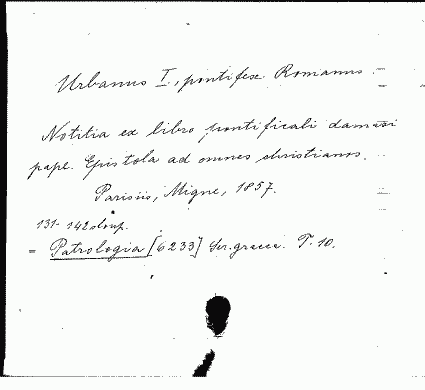 Urbanus I, pontifex Romanus.
Notitia ex libro pontificali damasi
pape. Epistola ad omnes christianos.
Parisiis, Migne, 1857.
131-142 sloup.
= Patrologia [6233] Ser. graeca. T. 10.